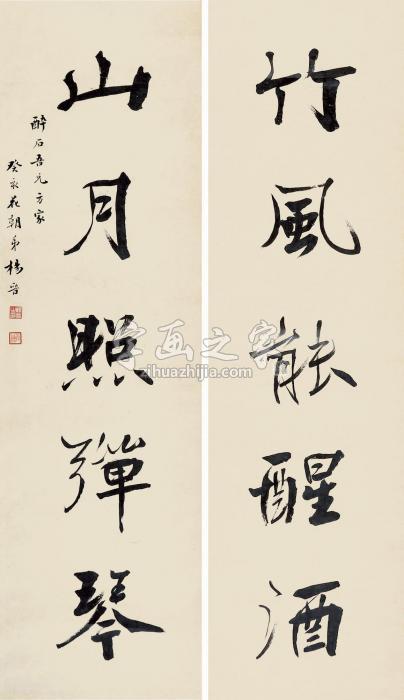 竹風能醒酒
山月照彈琴
醉石吾兄方家
癸未花朝弟楊晋
字画之家
zihuazhijia.com